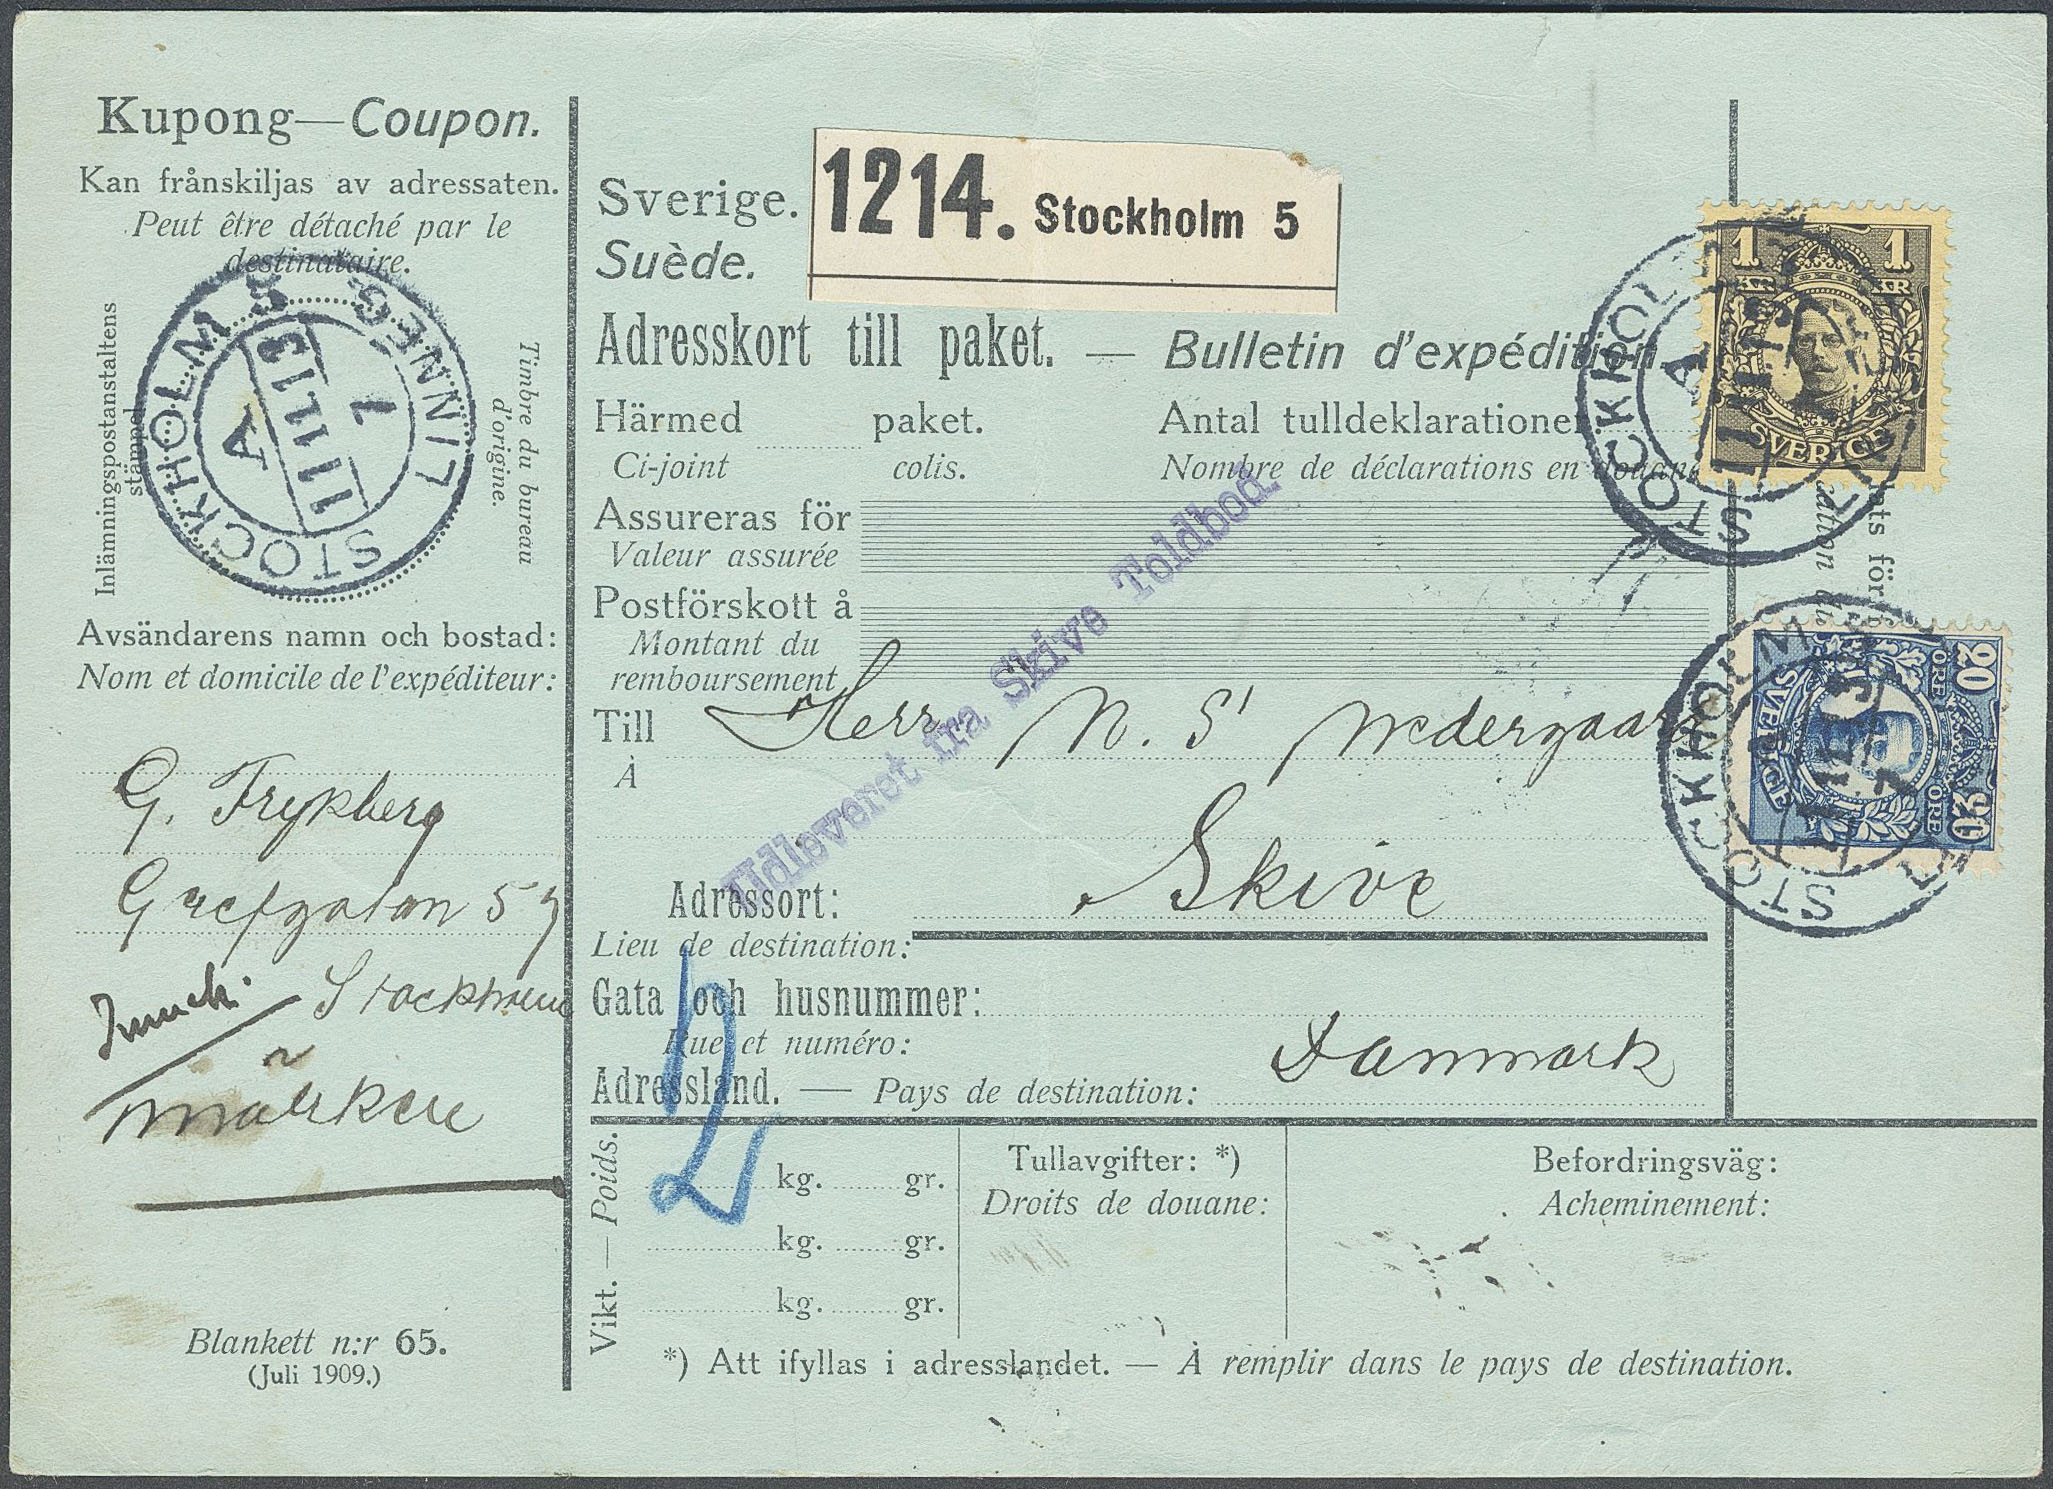 Kupong—Coupon.
Kan frånskiljas av adressaten.
Peut être détaché par le
destinataire.
Inlämningspostanstaltens
stämpel
STOCKHOLM 5
LINNEG.
A
11 11 13
7
Timbre du bureau
d'origine.
Avsändarens namn och bostad:
Nom et domicile de l'expéditeur:
G. Frykberg
Grefgatan 57
Stockholm
märken
Blankett n:r 65.
(Juli 1909.)
Sverige.
Suède.
1214. Stockholm 5
Adresskort till paket. — Bulletin d'expédition.
Härmed paket. Antal tulldeklarationer
Ci-joint colis. Nombre de déclarations en douane
Assureras för
Valeur assurée
Postförskott å
Montant du
remboursement
Udleveret fra Skive Toldbod.
Till Herr N. S. Nedergaard
À
Adressort: Skive
Lieu de destination:
Gata och husnummer:
Rue et numéro:
Danmark
Adressland. — Pays de destination:
Vikt. — Poids.
2
kg. gr.
kg. gr.
kg. gr.
Tullavgifter: *)
Droits de douane:
Befordringsväg:
Acheminement:
*) Att ifyllas i adresslandet. — À remplir dans le pays de destination.
1 1
KR KR
SVERIGE
STOCKHOL
A
för
20 20
ÖRE ÖRE
SVERIGE
STOCKHOLM